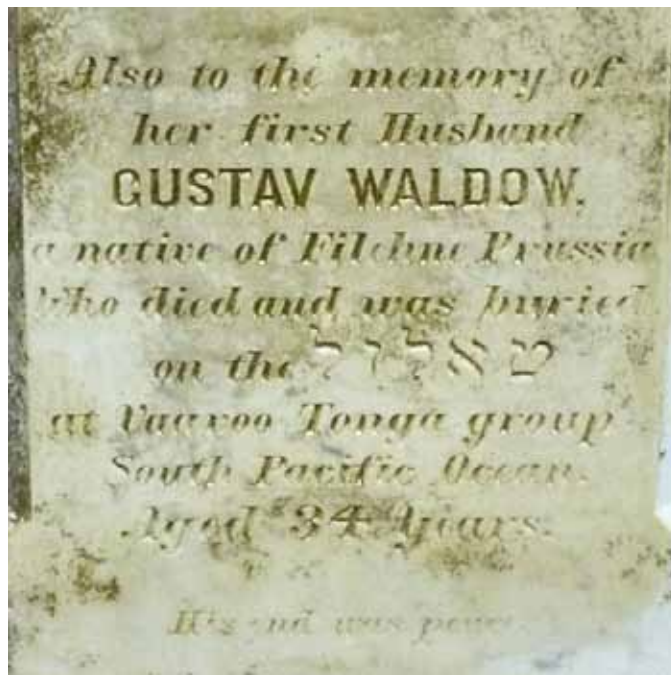 Also to the memory of
her first Husband
GUSTAV WALDOW,
a native of Filehne Prussia
Who died and was buried
on the ט אלול
at Vaavoo Tonga group
South Pacific Ocean.
Aged 34 Years.
His end was peace